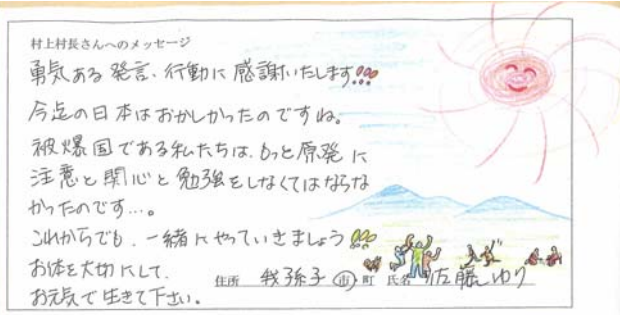 村上村長さんへのメッセージ
勇気ある発言、行動に感謝いたします!!!
今迄の日本はおかしかったのですね。
被爆国である私たちは、もっと原発に
注意と関心と勉強をしなくてはならな
かったのです…。
これからでも、一緒にやっていきましょう!!
お体を大切にして、
お元気で生きて下さい。
住所 我孫子 市・町 氏名 佐藤ゆり